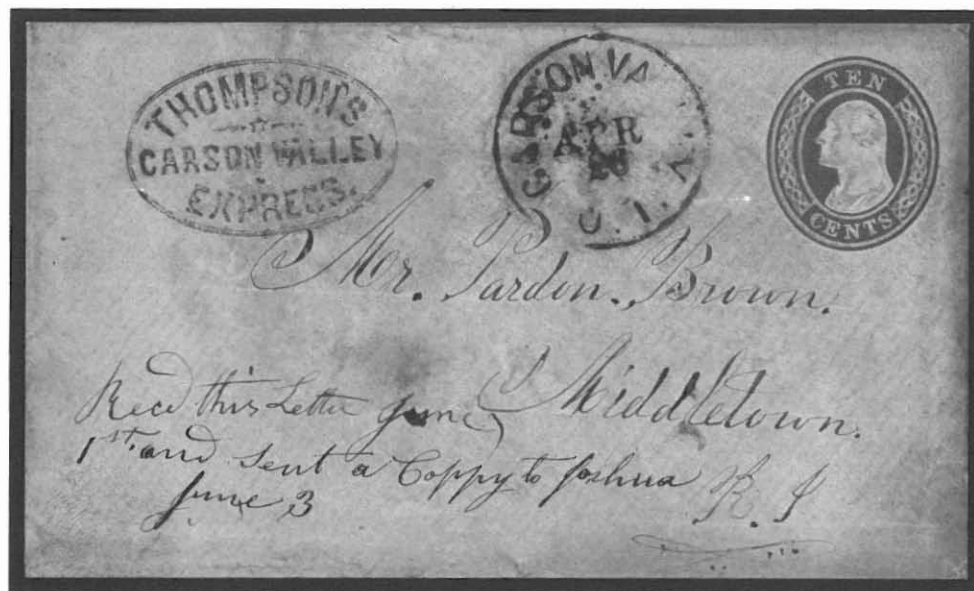 THOMPSON'S
CARSON VALLEY
EXPRESS.
CARSON VA
APR
U. T.
TEN
CENTS
Mr. Pardon. Brown.
Middletown.
R. I
Recd this Letter June
1st. and Sent a Coppy to Joshua
June 3